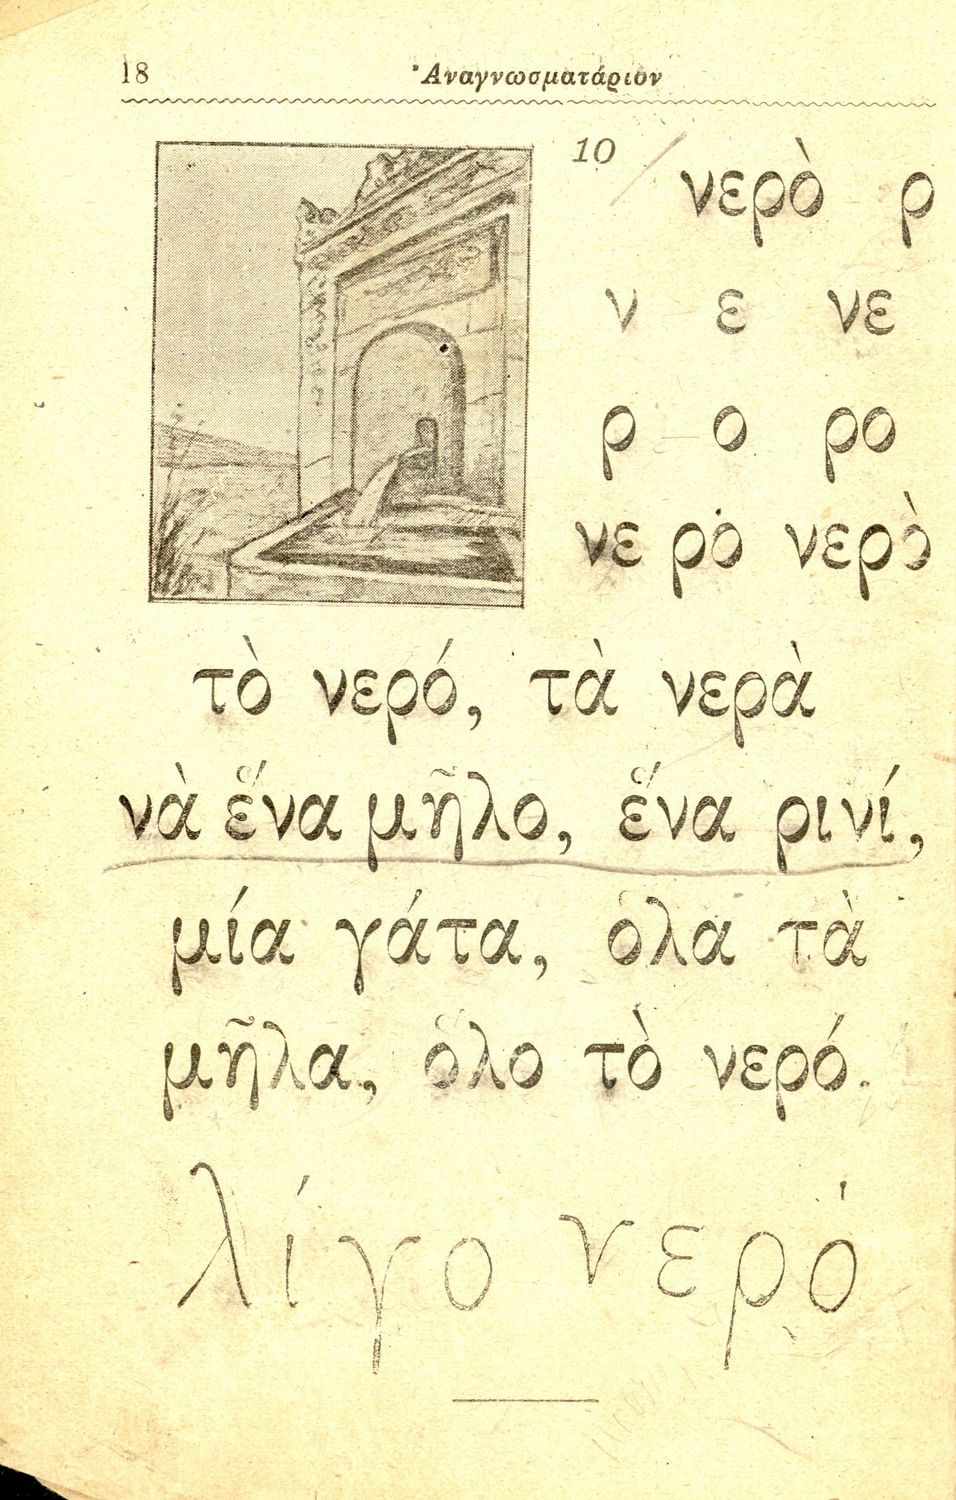 18 Ἀναγνωσματάριον
10 νερὸ ρ
ν ε νε
ρ ο ρο
νε ρὸ νερὸ
τὸ νερό, τὰ νερὰ
νὰ ἕνα μῆλο, ἕνα ρινί,
μία γάτα, ὅλα τὰ
μῆλα, ὅλο τὸ νερό.
λίγο νερό